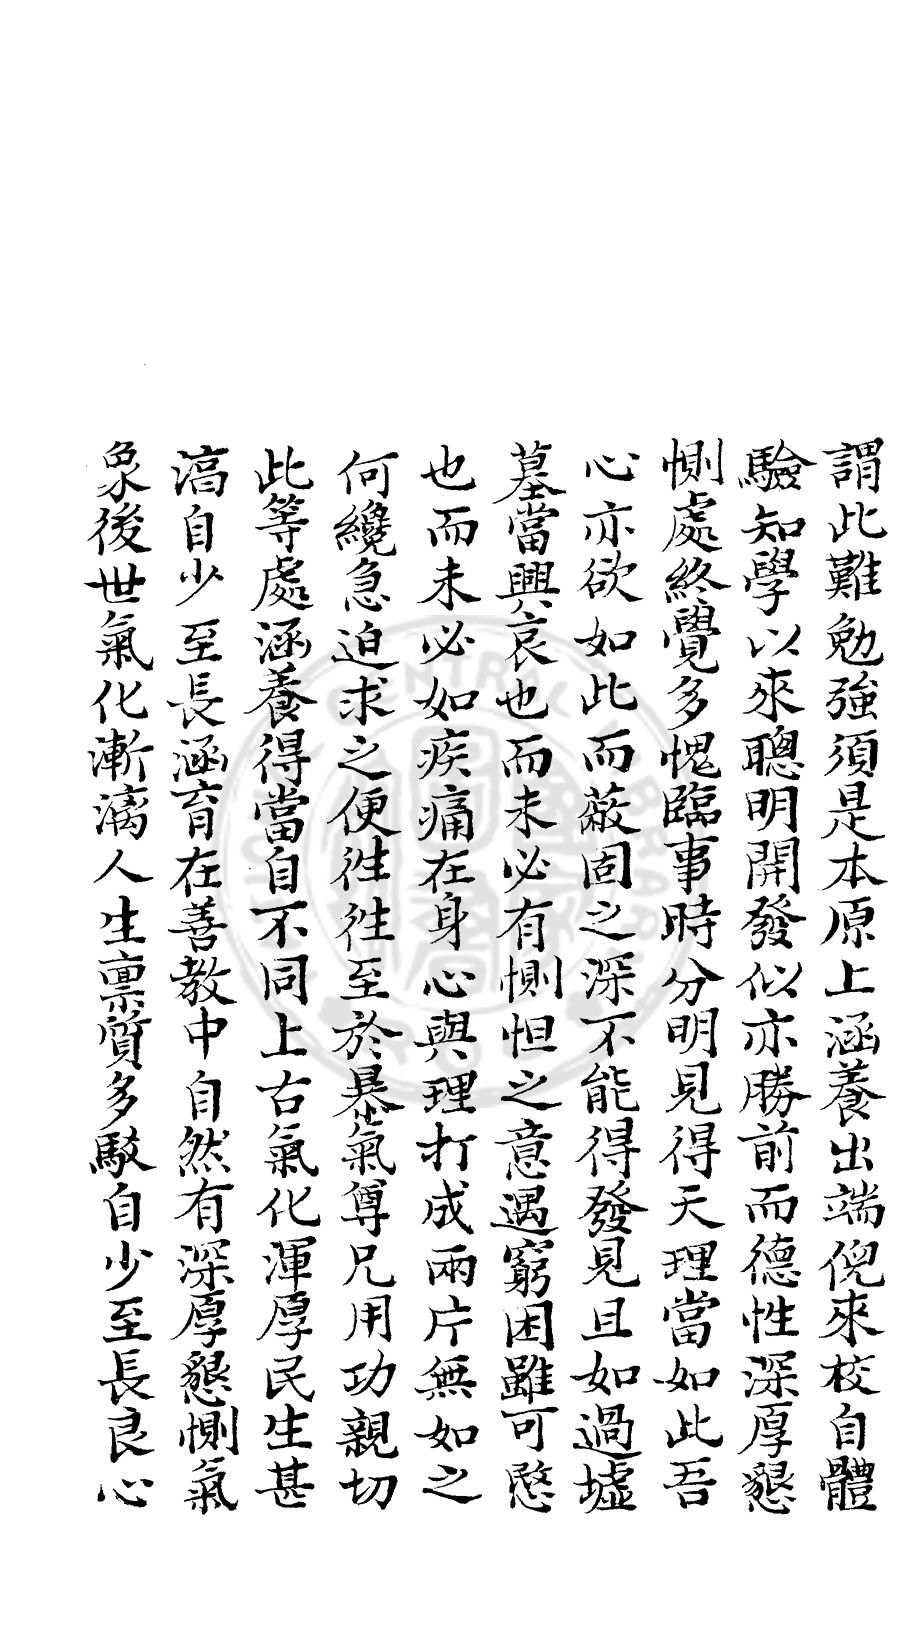 謂此難勉強須是本原上涵養出端倪來校自體
驗知學以來聰明開發似亦勝前而德性深厚懇
惻處終覺多愧臨事時分明見得天理當如此吾
心亦欲如此而蔽固之深不能得發見且如過墟
墓當興哀也而未必有惻怛之意遇窮困雖可愍
也而未必如疾痛在身心與理打成兩片無如之
何纔急迫求之便徃徃至於暴氣尊兄用功親切
此等處涵養得當自不同上古氣化渾厚民生甚
滈自少至長涵育在善教中自然有深厚懇惻氣
象後世氣化漸漓人生禀質多駁自少至長良心